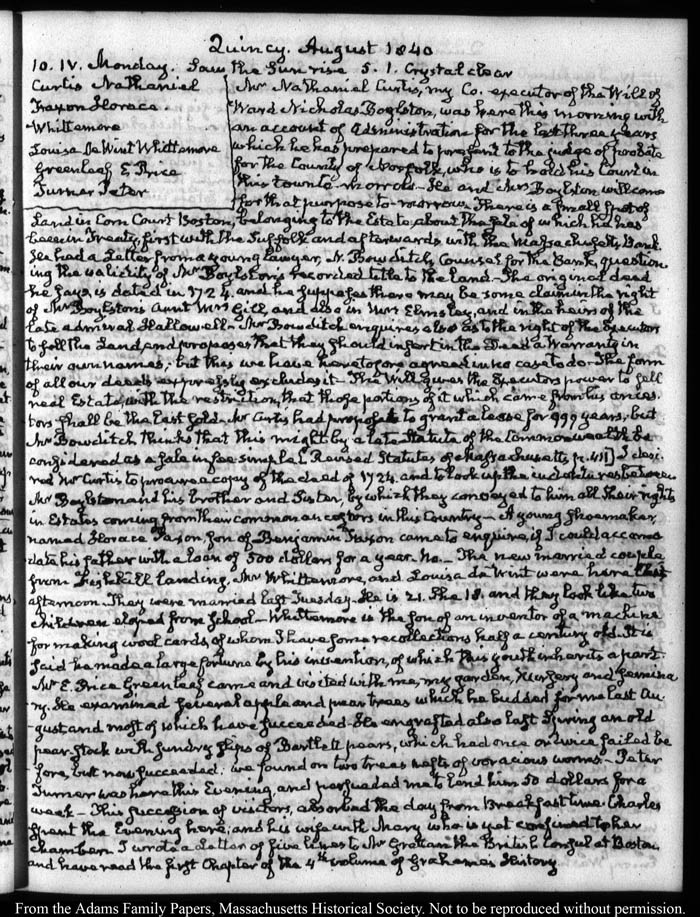 Quincy. August 1840
10. IV. Monday. Saw the Sun rise 5. 1. Crystal clear
Curtis Nathaniel
Faxon Horace.
Whittemore
Louisa De Wint Whittemore
Greenleaf E Price
Turner Peter
Mr Nathaniel Curtis, my Co. executor of the Will of
Ward Nicholas Boylston, was here this morning with
an account of Administration for the last three years
which he has prepared to present to the judge of probate
for the County of Norfolk, who is to hold his Court in
this town to-morrow. He and Mrs Boylston will come
for that purpose to-morrow. There is a small spot of
Land in Corn Court Boston, belonging to the Estate, about the sale of which he has
been in Treaty, first with the Suffolk and afterwards with the Massachusetts Bank
He had a Letter from a young Lawyer, N. Bowditch, Counsel for the Bank, question
ing the validity of Mr Boylston's recorded title to the Land. The original deed
he says, is dated in 1724, and he supposes there may be some claim in the right
of Mr Boylston's Aunt Mrs Gill, and also in Mrs Elmsley, and in the heirs of the
late admiral Hallowell. Mr Bowditch enquires also as to the right of the Executors
to sell the Land, and proposes that they should insert in the Deed a Warranty in
their own names; but this we have heretofore agreed in no case to do. The form
of all our deeds expressly excludes it. The Will gives the Executors power to sell
real Estate, with the restriction, that those portions of it which came from his ances
tors shall be the last sold. Mr Curtis had proposed to grant a lease for 999 years; but
Mr Bowditch thinks that this might by a late Statute of the Commonwealth be
considered as a sale in fee simple [Revised Statutes of Massachusetts p. 411] I desi
red Mr Curtis to procure a copy of the deed of 1724, and to look up the indentures between
Mr Boylston and his brother and Sister, by which they conveyed to him all their rights
in Estates coming from their common ancestors in this Country. A young shoemaker,
named Horace Faxon, son of Benjamin Faxon came to enquire, if I could accomo
date his father with a loan of 500 dollars for a year. No. The new married couple
from Fishkill landing, Mr Whittemore, and Louisa de Wint were here this
afternoon. They were married last Tuesday. He is 21. She 18. and they look like two
children eloped from School. Whittemore is the son of an inventor of a machine
for making wool cards, of whom I have some recollections half a century old. It is
said he made a large fortune by his invention, of which this youth inherits a part.
Mr E. Price Greenleaf came and visited with me, my garden, Nursery and Semina
ry. He examined several apple and pear trees which he budded for me last Au
gust and most of which have succeeded. He engrafted also last Spring an old
pear stock with sundry slips of Bartlett pears, which had once or twice failed be
fore, but now succeeded: we found on two trees nests of voracious worms. Peter
Turner was here this Evening, and persuaded me to lend him 50 dollars for a
week. This succession of visitors, absorbed the day from Breakfast time. Charles
spent the Evening here, and his wife with Mary who is yet confined to her
chamber. I wrote a Letter of five lines to Mr Grattan the British Consul at Boston
and have read the first Chapter of the 4th volume of Grahame's History
From the Adams Family Papers, Massachusetts Historical Society. Not to be reproduced without permission.